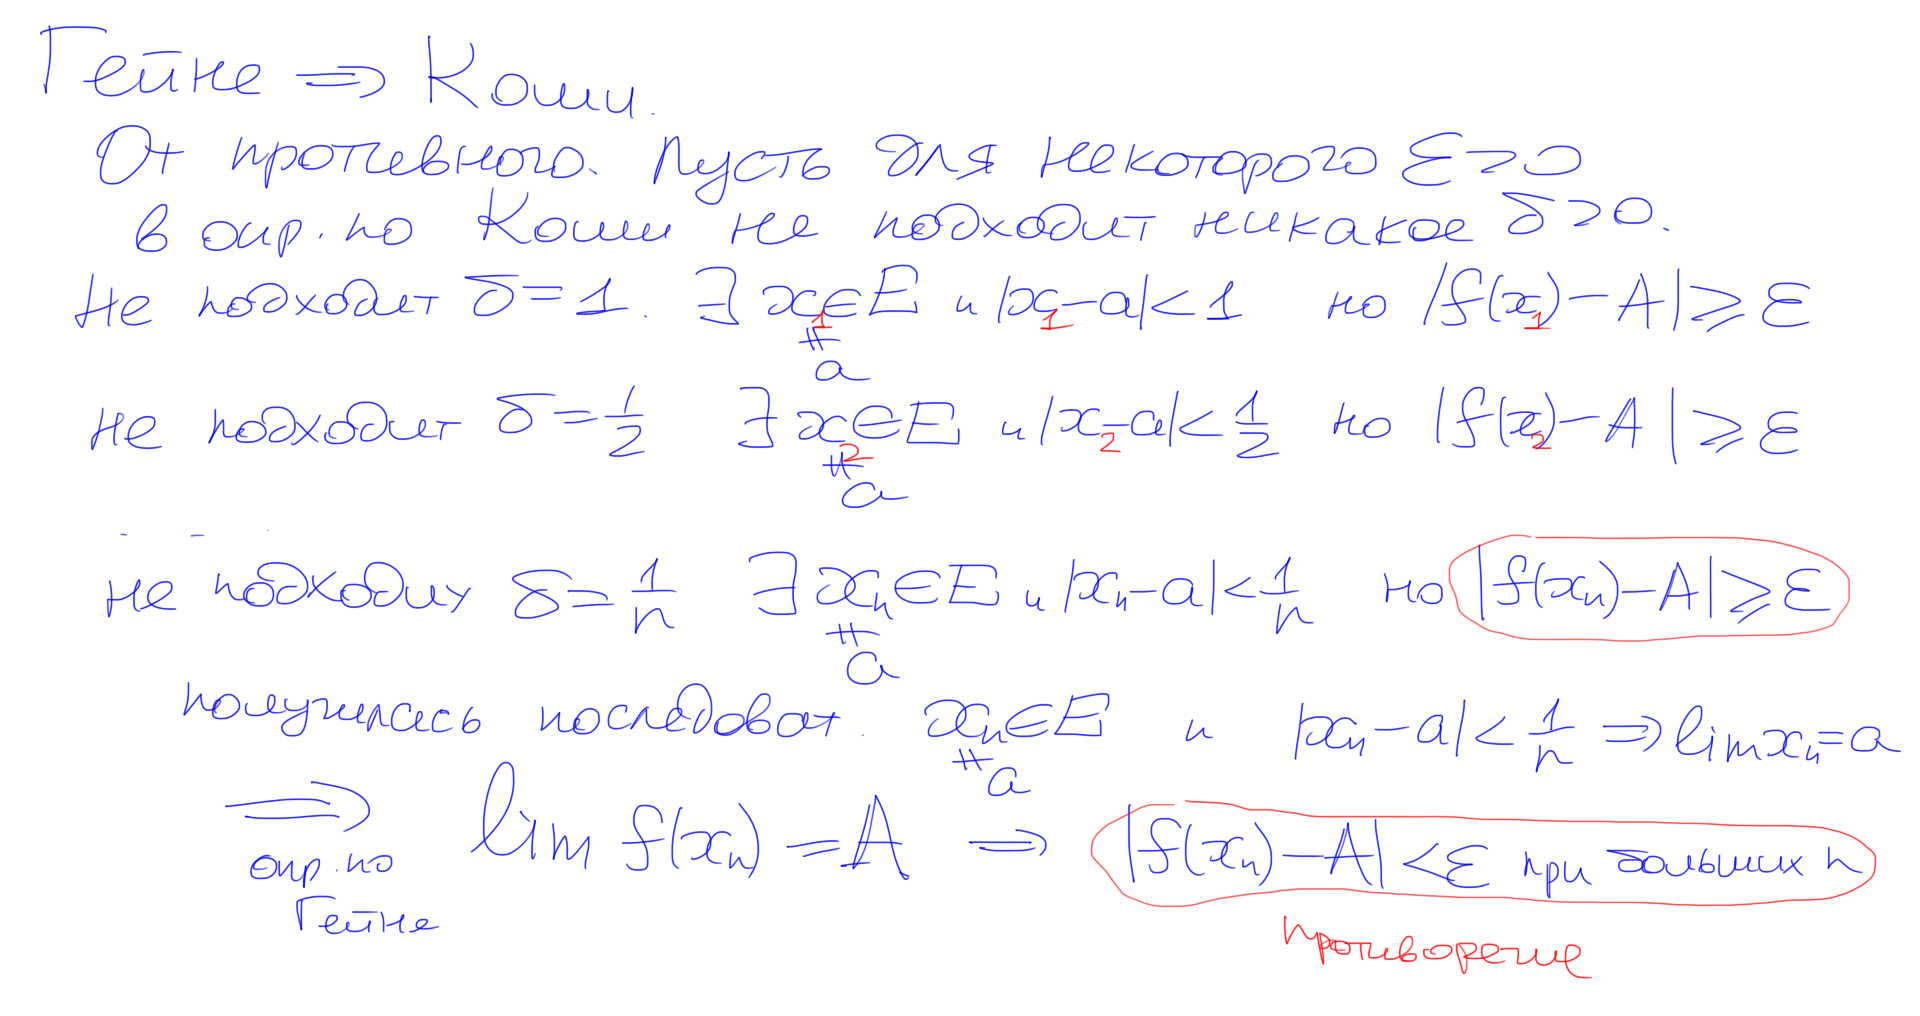 Гейне ⇒ Коши.
От противного. Пусть для некоторого ε>0
в опр. по Коши не подходит никакое δ>0.
Не подходит δ=1. ∃ x₁∈E и |x₁-a|<1 но |f(x₁)-A|⩾ε
≠
a
не подходит δ=1/2 ∃ x₂∈E и |x₂-a|<1/2 но |f(x₂)-A|⩾ε
≠
a
не подходит δ=1/n ∃ xₙ∈E и |xₙ-a|<1/n но |f(xₙ)-A|⩾ε
≠
a
получилась последоват. xₙ∈E и |xₙ-a|<1/n ⇒ lim xₙ=a
≠
a
⇒ lim f(xₙ)=A ⇒ |f(xₙ)-A|<ε при больших n
опр. по
Гейне
противоречие